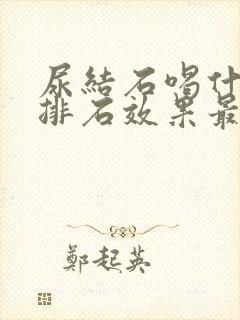 尿結石喝什
排石效果最
鄭起英